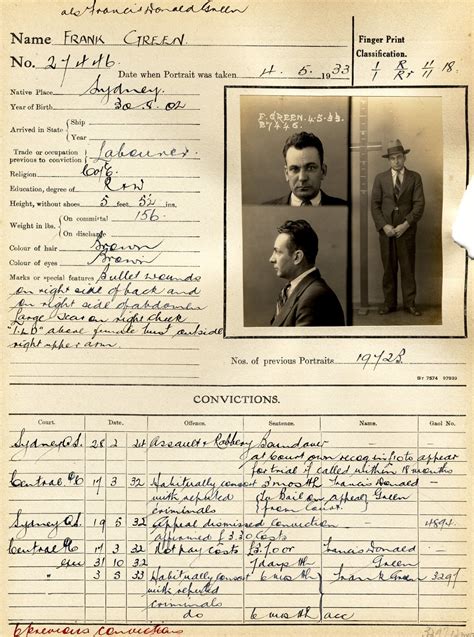 als Francis Donald Green
Name FRANK GREEN.
Finger Print
Classification.
No. 27446
Date when Portrait was taken 4. 5. 1933
1 R 11 18.
1 Rr 11
Native Place Sydney.
Year of Birth 30.8.02
Arrived in State { Ship
Year
Trade or occupation previous to conviction } Labourer
Religion C of E.
Education, degree of R&W
Height, without shoes 5 feet 5½ ins.
Weight in lbs. { On committal 156.
On discharge
Colour of hair Brown
Colour of eyes Brown
Marks or special features Bullet wounds
on right side of back and
on right side of abdomen
Large scar on right cheek
above female bust outside
right upper arm.
F. GREEN. 4.5.33.
B7446.
Nos. of previous Portraits 1972S.
CONVICTIONS.
Court. Date. Offence. Sentence. Name. Gaol No.
Sydney Q.S. 28 2 24 Assault & Robbery Boundover
at Court own recog in £10 to appear
for trial if called within 18 months
Central P.C 17 3 32 Habitually consort 3 months Francis Donald
with reputed On Bail on appeal Green
criminals from Court.
Sydney Q.S. 19 5 32 Appeal dismissed conviction 4894.
affirmed £3.30 Costs
Central P.C 17 3 32 Not pay costs £3.1.0 or Francis Donald
31 10 32 7 days Hh Green
3 5 33 Habitually consort 6 mos Hh Frank Green 3297
with reputed
criminals
do 6 mos Hh acc
6 previous convictions